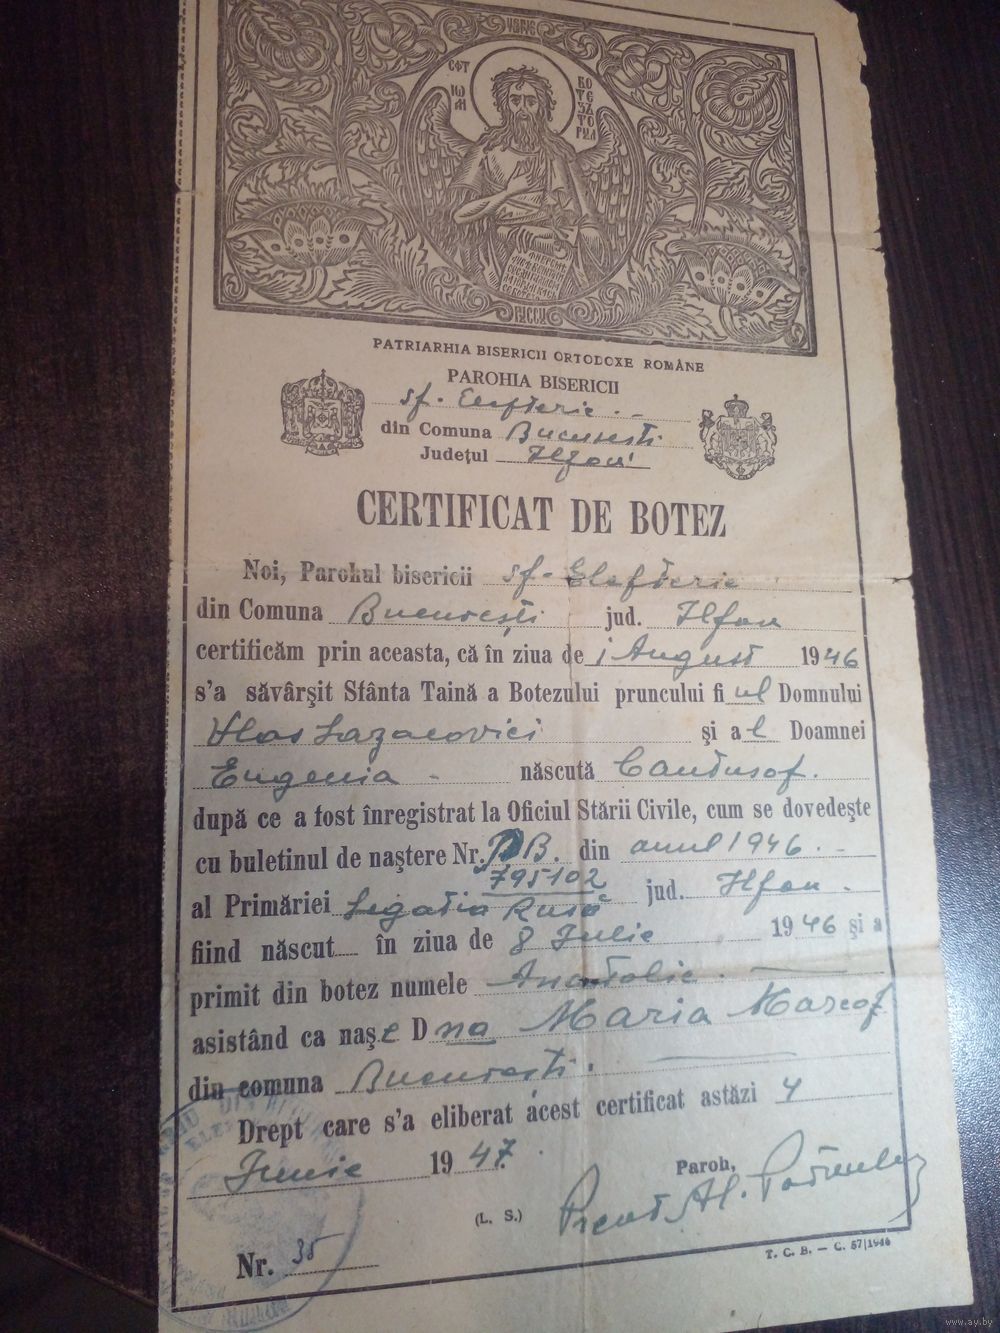 СФТ
ІѠАН
БОТЕЗЪТОРУЛ
PATRIARHIA BISERICII ORTODOXE ROMÂNE
PAROHIA BISERICII
sf. Elefterie
din Comuna București
Județul Ilfov
CERTIFICAT DE BOTEZ
Noi, Parohul bisericii sf. Elefterie
din Comuna București jud. Ilfov
certificăm prin aceasta, că în ziua de 1 August 1946
s'a săvârșit Sfânta Taină a Botezului pruncului fiul Domnului
Vlas Lazarovici și al Doamnei
Eugenia născută Cantusof.
după ce a fost înregistrat la Oficiul Stării Civile, cum se dovedește
cu buletinul de naștere Nr. PB. din anul 1946.
795102
al Primăriei Legația Rusă jud. Ilfov.
fiind născut în ziua de 8 Iulie 1946 și a
primit din botez numele Anatolie.
asistând ca nașe Dna Maria Marcof
din comuna București.
Drept care s'a eliberat acest certificat astăzi 4
Junie 1947.
Paroh,
Preot Al.
(L. S.)
Nr. 35
T. C. B. — C. 57|1946
www.ay.by